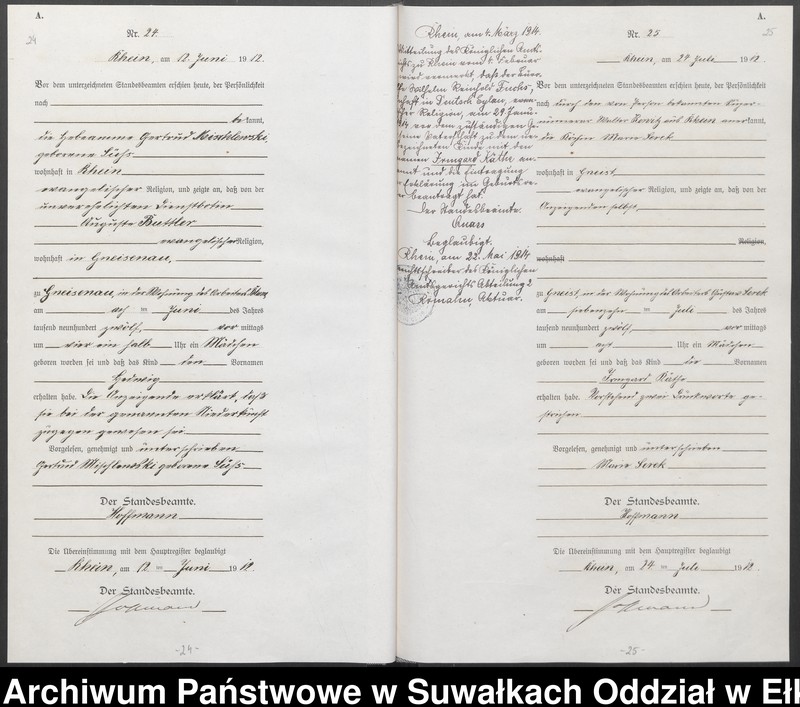 A.
24
Nr. 24.
Rhein, am 12. Juni 1912.
Vor dem unterzeichneten Standesbeamten erschien heute, der Persönlichkeit
nach
be kannt,
die Hebeamme Gertrud Mischlewski
geborene Suhs
wohnhaft in Rhein
evangelischer Religion, und zeigte an, daß von der
unverehelichten Dienstbotin
Auguste Buttler
evangelischer Religion,
wohnhaft in Gneisenau,
zu Gneisenau, in der Wohnung des Arbeiters
am acht ten Juni des Jahres
tausend neunhundert zwölf, vor mittags
um vier ein halb Uhr ein Mädchen
geboren worden sei und daß das Kind den Vornamen
Hedwig
erhalten habe. Die Anzeigende erklärt, daß
sie bei der genannten Niederkunft
zugegen gewesen sei.
Vorgelesen, genehmigt und unterschrieben
Gertrud Mischlewski geborene Suhs
Der Standesbeamte.
Hoffmann
Die Übereinstimmung mit dem Hauptregister beglaubigt
Rhein, am 12 ten Juni 1912.
Der Standesbeamte.
Hoffmann
-24-
Rhein, am 4. März 1914.
Mitteilung des Königlichen Amts-
zu Rhein vom 4. Februar
wird vermerkt, daß der
Wilhelm Reinhold Fuchs,
in Deutsch Eylau,
Religion, am 29. Janu-
vor dem zuständigen
Vaterschaft zu dem
bezeichneten Kinde mit den
Irmgard Käthe an-
und die Eintragung
Erklärung im Geburtsre-
beantragt hat.
Der Standesbeamte.
Quass
Beglaubigt.
Rhein, am 22. Mai 1914
Gerichtsschreiber des Königlichen
Amtsgerichts Abteilung 2
Romahn, Aktuar.
A.
25
Nr. 25
Rhein, am 24 Juli 1912.
Vor dem unterzeichneten Standesbeamten erschien heute, der Persönlichkeit
nach durch den von Person bekannten
Walter aus Rhein anerkannt,
die Köchin Marie Serek
wohnhaft in Gneist,
evangelischer Religion, und zeigte an, daß von der
Anzeigenden selbst,
Religion,
wohnhaft
zu Gneist, in der Wohnung des Arbeiters Gustav Serek
am siebenzehn ten Juli des Jahres
tausend neunhundert zwölf, vor mittags
um acht Uhr ein Mädchen
geboren worden sei und daß das Kind die Vornamen
Irmgard Käthe
erhalten habe. Vorstehend zwei Druckworte ge-
strichen
Vorgelesen, genehmigt und unterschrieben
Marie Serek
Der Standesbeamte.
Hoffmann
Die Übereinstimmung mit dem Hauptregister beglaubigt
Rhein, am 24 ten Juli 1912.
Der Standesbeamte.
Hoffmann
-25-
Archiwum Państwowe w Suwałkach Oddział w Ełk